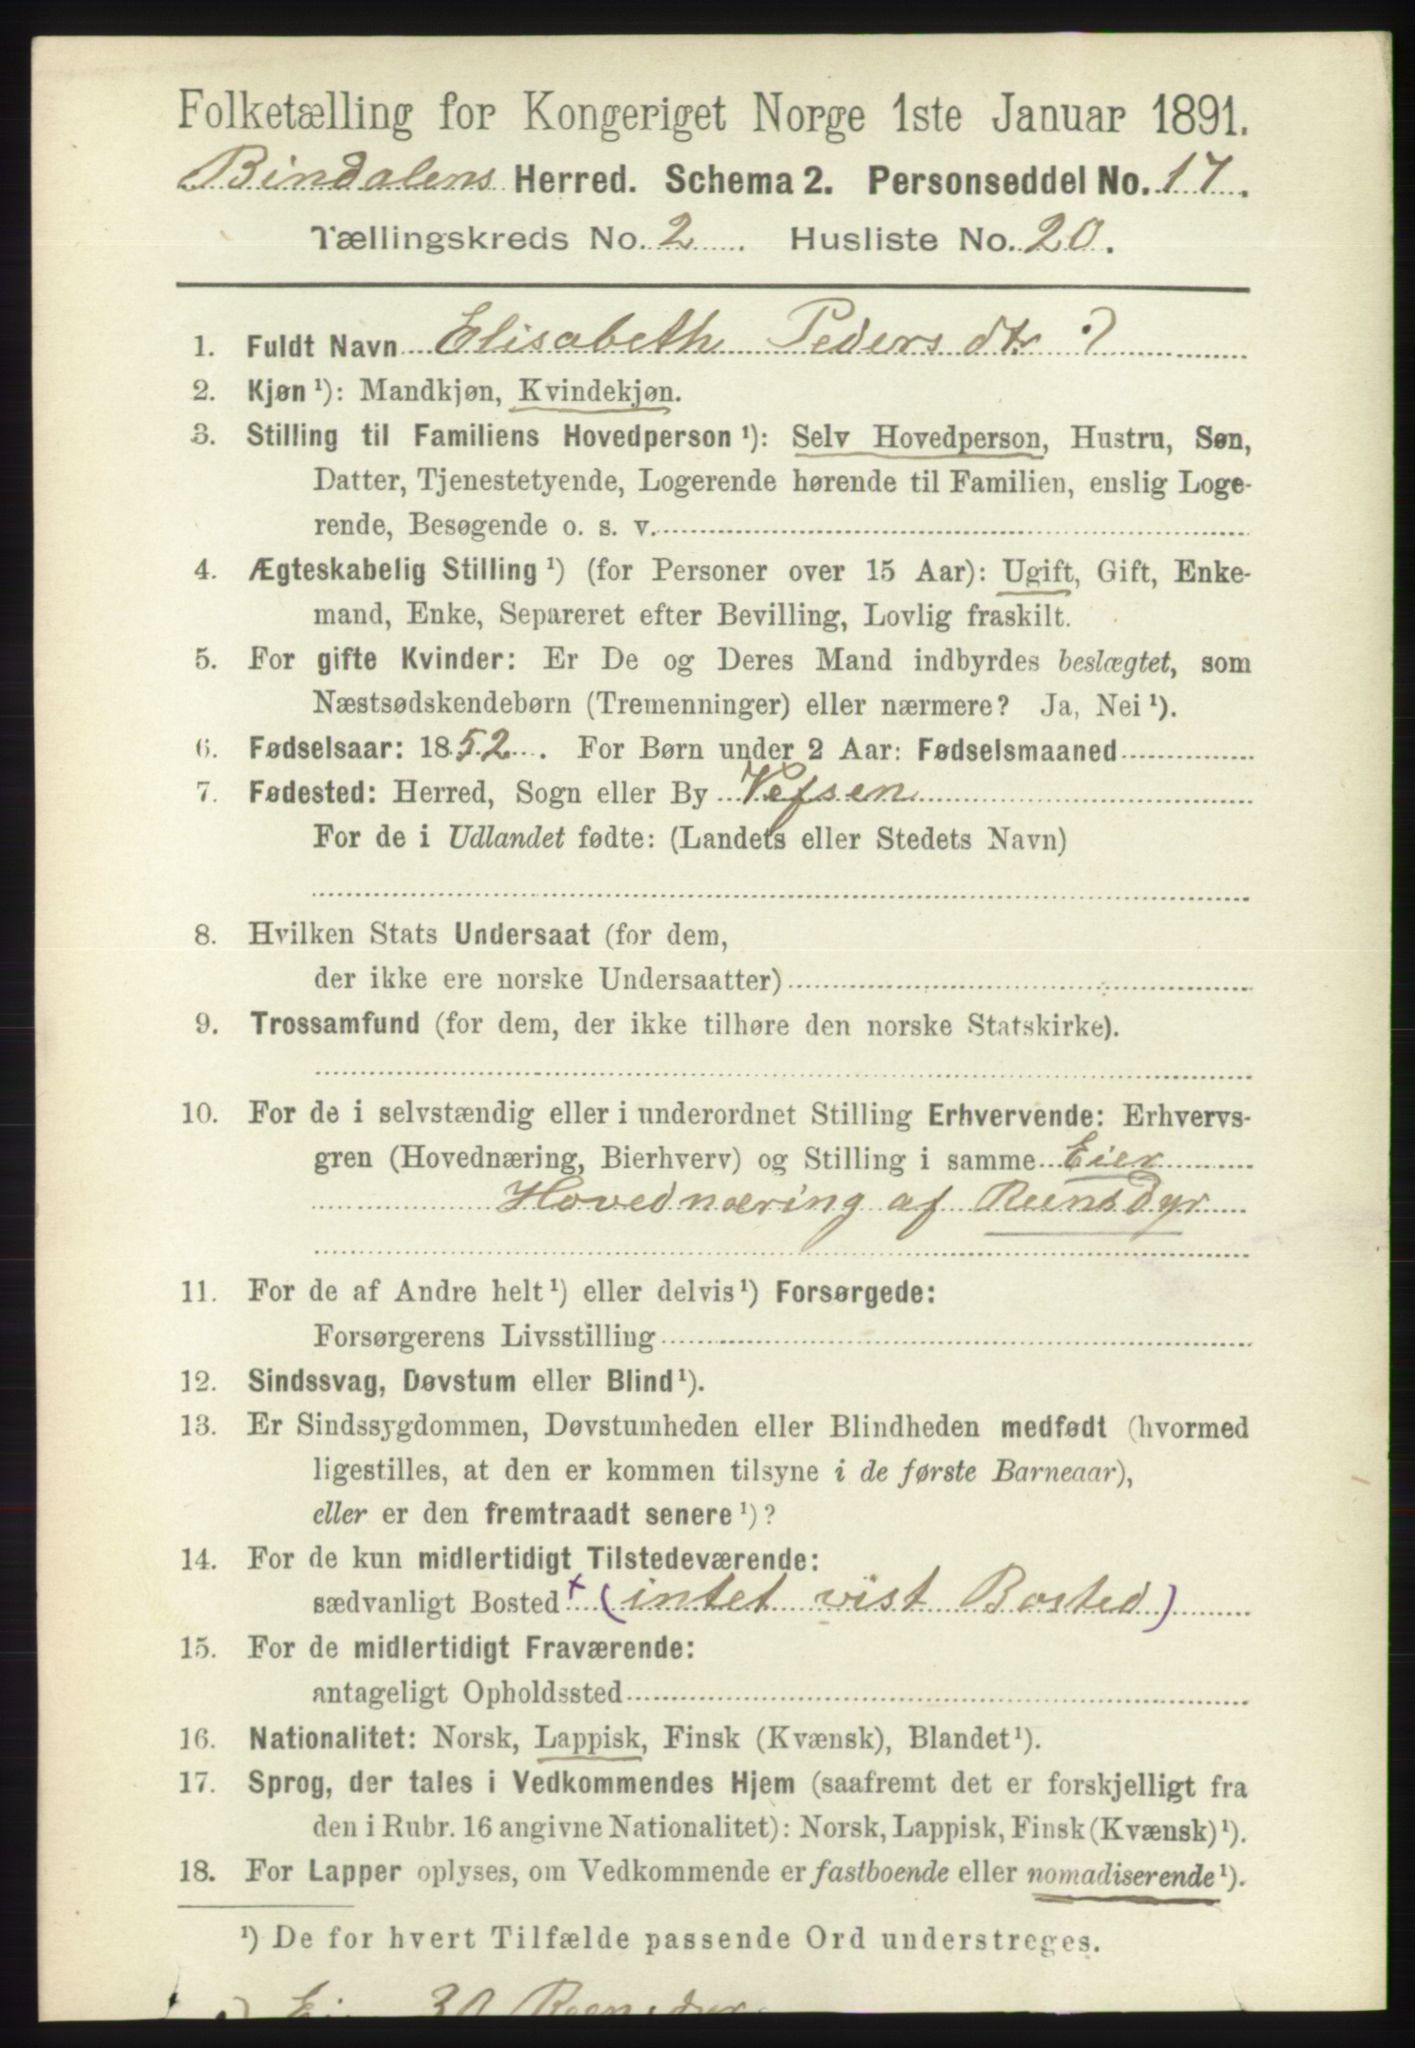 Folketælling for Kongeriget Norge 1ste Januar 1891.
Bindalens Herred. Schema 2. Personseddel No. 17.
Tællingskreds No. 2. Husliste No. 20.
1. Fuldt Navn Elisabeth Pedersdtr
2. Kjøn ¹): Mandkjøn, Kvindekjøn.
3. Stilling til Familiens Hovedperson ¹): Selv Hovedperson, Hustru, Søn,
Datter, Tjenestetyende, Logerende hørende til Familien, enslig Loge-
rende, Besøgende o. s. v.
4. Ægteskabelig Stilling ¹) (for Personer over 15 Aar): Ugift, Gift, Enke-
mand, Enke, Separeret efter Bevilling, Lovlig fraskilt.
5. For gifte Kvinder: Er De og Deres Mand indbyrdes beslægtet, som
Næstsødskendebørn (Tremenninger) eller nærmere? Ja, Nei ¹).
6. Fødselsaar: 1852. For Børn under 2 Aar: Fødselsmaaned
7. Fødested: Herred, Sogn eller By Vefsen
For de i Udlandet fødte: (Landets eller Stedets Navn)
8. Hvilken Stats Undersaat (for dem,
der ikke ere norske Undersaatter)
9. Trossamfund (for dem, der ikke tilhøre den norske Statskirke).
10. For de i selvstændig eller i underordnet Stilling Erhvervende: Erhvervs-
gren (Hovednæring, Bierhverv) og Stilling i samme Eier
Hovednæring af Reensdyr
11. For de af Andre helt ¹) eller delvis ¹) Forsørgede:
Forsørgerens Livsstilling
12. Sindssvag, Døvstum eller Blind ¹).
13. Er Sindssygdommen, Døvstumheden eller Blindheden medfødt (hvormed
ligestilles, at den er kommen tilsyne i de første Barneaar),
eller er den fremtraadt senere ¹)?
14. For de kun midlertidigt Tilstedeværende:
sædvanligt Bosted × (intet vist Bosted)
15. For de midlertidigt Fraværende:
antageligt Opholdssted
16. Nationalitet: Norsk, Lappisk, Finsk (Kvænsk), Blandet ¹).
17. Sprog, der tales i Vedkommendes Hjem (saafremt det er forskjelligt fra
den i Rubr. 16 angivne Nationalitet): Norsk, Lappisk, Finsk (Kvænsk) ¹).
18. For Lapper oplyses, om Vedkommende er fastboende eller nomadiserende ¹).
¹) De for hvert Tilfælde passende Ord understreges.
30 Reensdyr